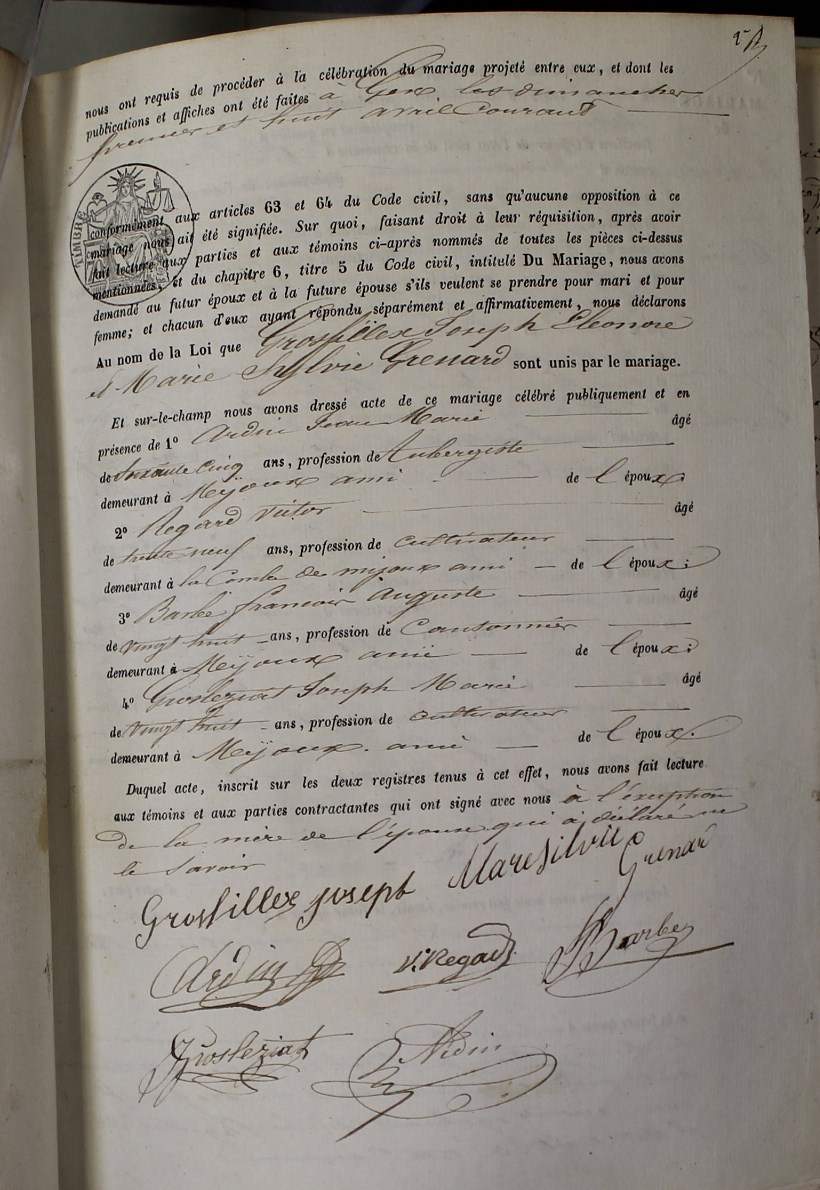 nous ont requis de procéder à la célébration du mariage projeté entre eux, et dont les
publications et affiches ont été faites à Gex les dimanches
premier et huit avril Courant
TIMBRE
conformément aux articles 63 et 64 du Code civil, sans qu'aucune opposition à ce
mariage nous ait été signifiée. Sur quoi, faisant droit à leur réquisition, après avoir
fait lecture aux parties et aux témoins ci-après nommés de toutes les pièces ci-dessus
mentionnées, et du chapitre 6, titre 5 du Code civil, intitulé Du Mariage, nous avons
demandé au futur époux et à la future épouse s'ils veulent se prendre pour mari et pour
femme; et chacun d'eux ayant répondu séparément et affirmativement, nous déclarons
Au nom de la Loi que Grosfillex Joseph Eleonore
et Marie Sylvie Grenard sont unis par le mariage.
Et sur-le-champ nous avons dressé acte de ce mariage célébré publiquement et en
présence de 1º Ardin Jean Marie âgé
de cinq ans, profession de Aubergiste
demeurant à Mijoux ami de l'époux
2º Regard Victor âgé
de trente neuf ans, profession de cultivateur
demeurant à la Combe de mijoux ami de l'époux;
3º Barbe françois Auguste âgé
de vingt huit ans, profession de Cantonnier
demeurant à Mijoux ami de l'époux;
4º Grosleziat Joseph Marie âgé
de vingt huit ans, profession de cultivateur
demeurant à Mijoux. ami de l'époux.
Duquel acte, inscrit sur les deux registres tenus à cet effet, nous avons fait lecture
aux témoins et aux parties contractantes qui ont signé avec nous à l'éxeption
de la mère de l'époux qui a déclaré ne
le savoir
Grosfillex joseph Marie silvie
Grenard
Ardin V. Regard Barbe
Grosleziat Ardin